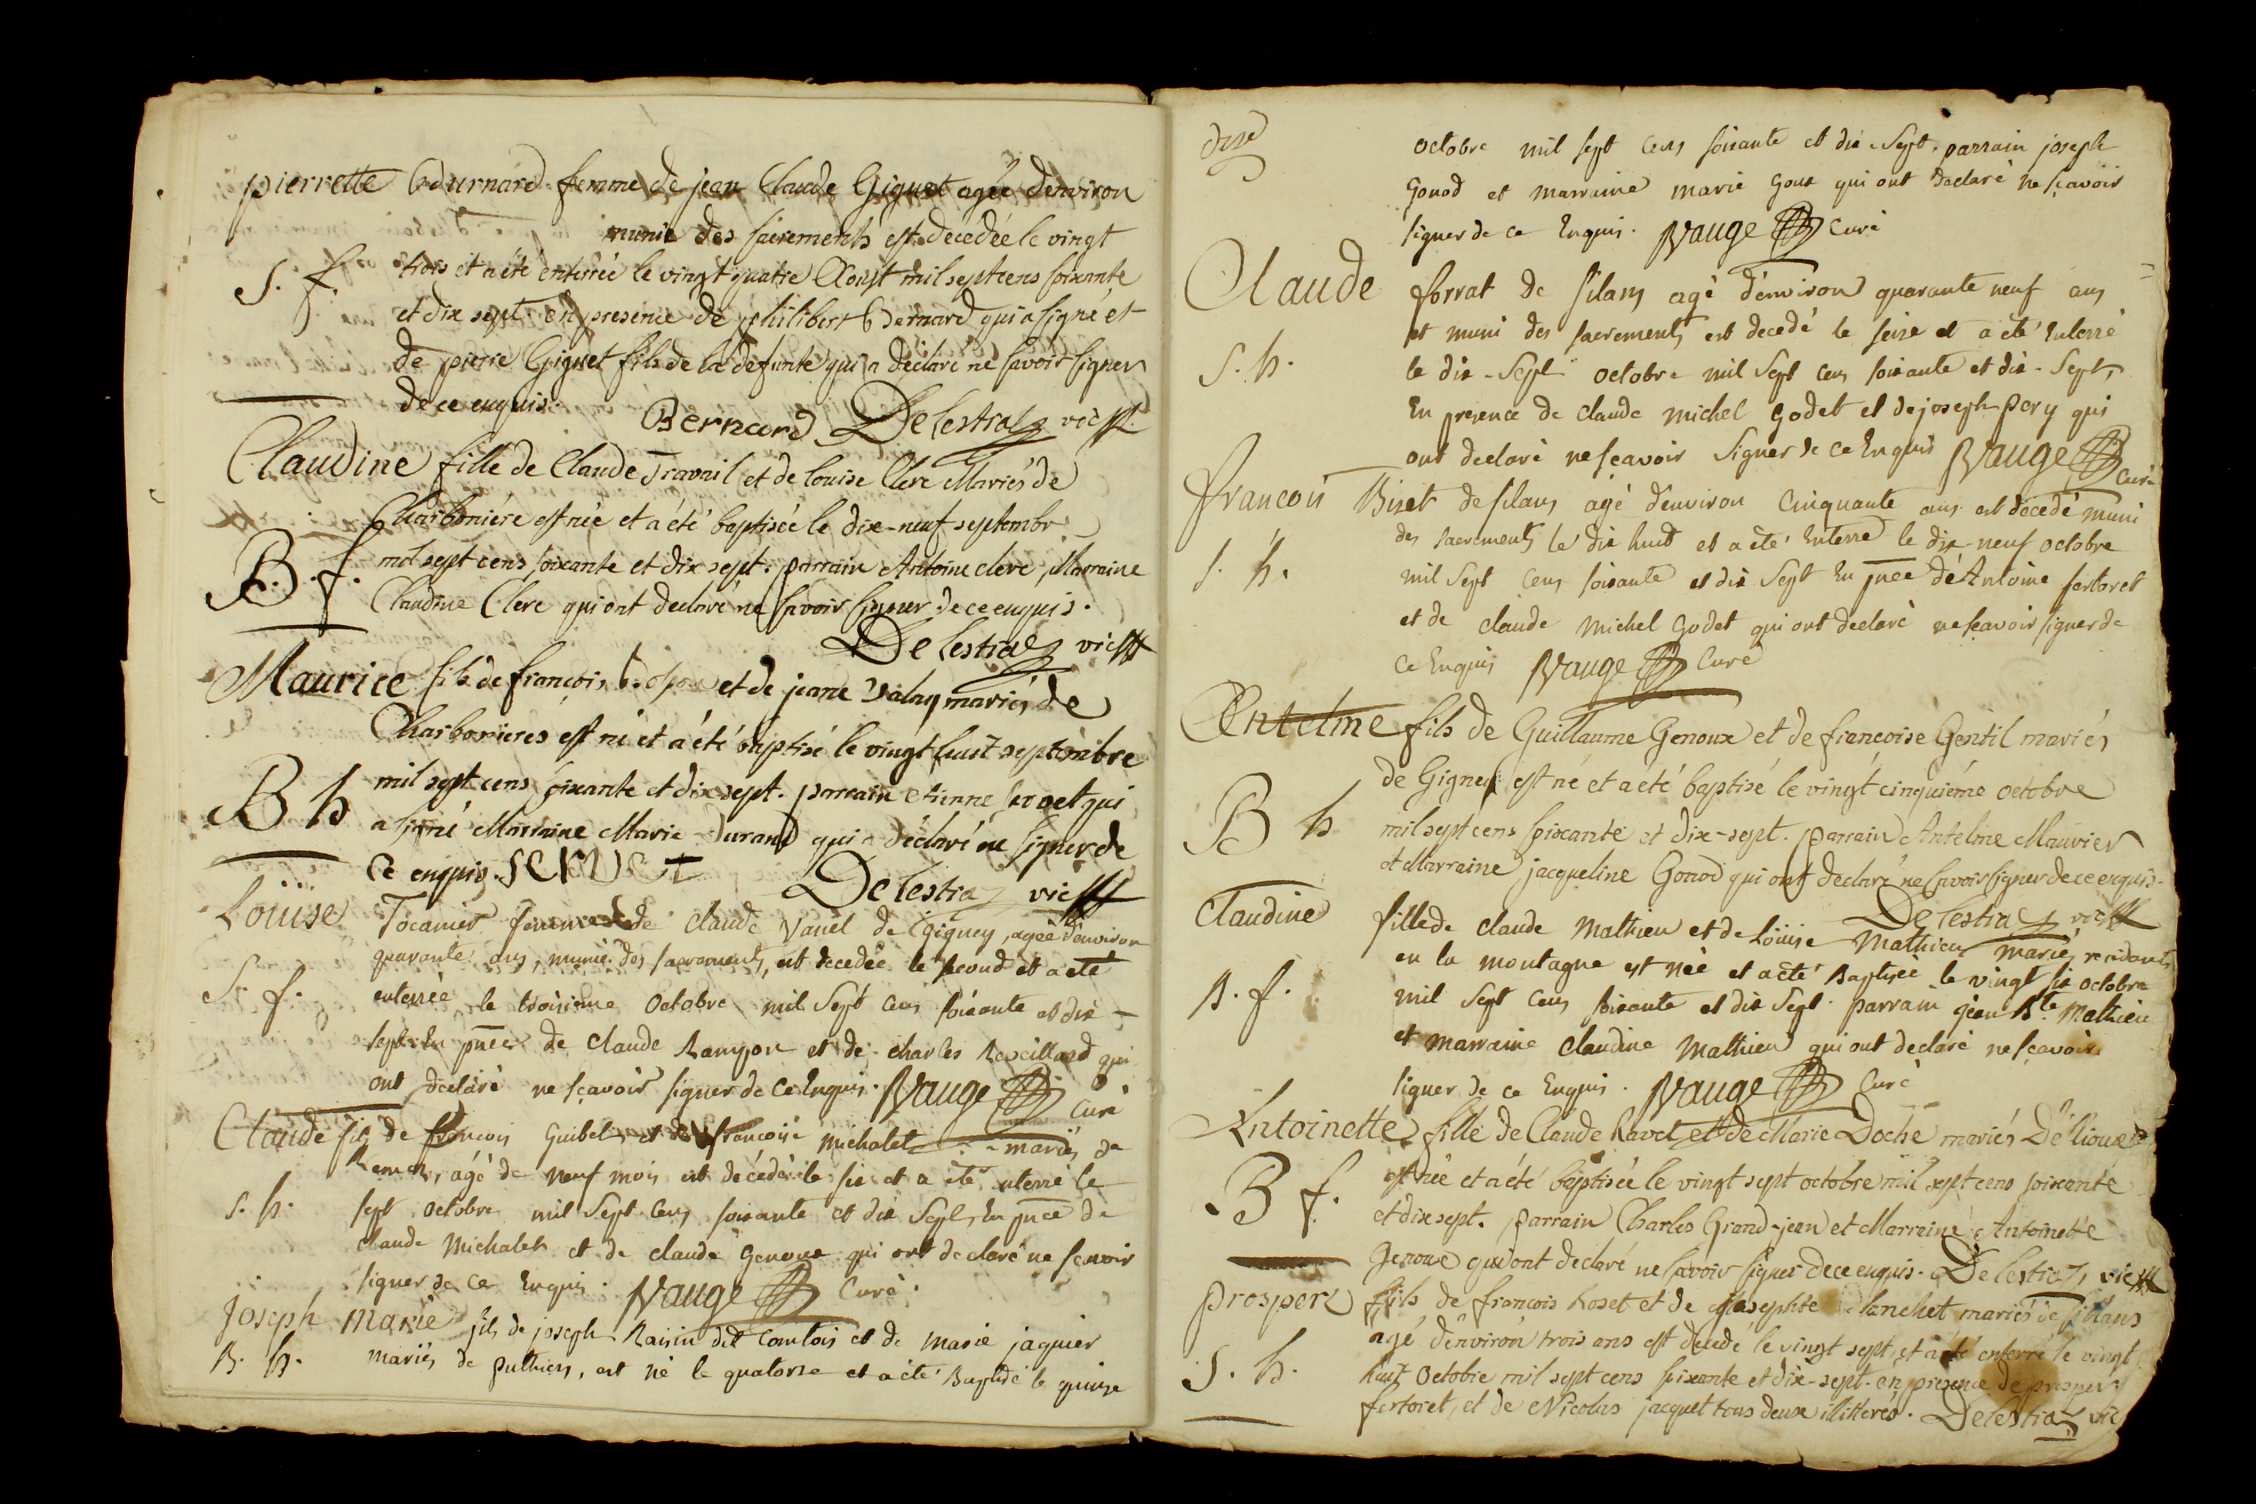 pierrette Bernard femme de jean Claude Giguet agée d'environ
munie des sacrements est decedée le vingt
S. f. trois et a été enterrée le vingt quatre Aoust mil sept cens soixante
et dix sept en presence de philibert Bernard qui a signé et
de pierre Giguet fils de la defunte qui a déclaré ne savoir signer
de ce enquis. Bernard Delestra vic
Claudine fille de Claude Travail et de louise Clerc Mariés de
Charboniere est née et a été baptisée le dix-neuf septembr
B. f. mil sept cens soixante et dix sept. parrain Antoine clerc, Marraine
Claudine Clerc qui ont declaré ne savoir signer de ce enquis.
Delestra vic
Maurice fils de francois et de jeane Valay mariés de
Charbonieres est né et a été baptisé le vingt huit septembre
B h mil sept cens soixante et dix sept. parrain etienne servet qui
a signé Marraine Marie Durand qui a déclaré ne signer de
ce enquis. servet Delestra vic
Loüise Tocanier femme de claude Vanel de Gigney, agée d'environ
quarante ans, munie des sacrements, est decedée le second et a eté
S. f. enterrée le troisieme octobre mil sept cens soixante et dix
sept En pnce de claude Ranyon et de charles Reveillard qui
ont declaré ne sçavoir signer de ce Enquis. Vauge Curé
Claude fils de francois Guibet et de francoise michalet mariés de
Remens, agé de neuf mois est décédé le six et a été enterré le
S. h. sept octobre mil sept cens soixante et dix sept, En pnce de
claude michalet et de claude genoux qui ont declaré ne scavoir
signer de ce Enquis. Vauge Curé.
joseph marie fils de joseph Raisin dit comtois et de marie jaquier
B. h. mariés de puthiers, est né le quatorze et a été Baptisé le quinze
octobre mil sept cens soixante et dix sept. parrain joseph
Gonod et marraine marie Goux qui ont declaré ne sçavoir
signer de ce Enquis. Vauge Curé
Claude forrat de silans agé d'environ quarante neuf ans
et muni des sacrements est decedé le seize et a eté Enterré
S. h. le dix-sept octobre mil sept cens soixante et dix-sept,
En presence de claude michel godet et de joseph pery qui
ont declaré ne sçavoir signer de ce Enquis Vauge Curé
francois Bizet de silans agé d'environ Cinquante ans est decedé muni
des sacrements le dix huit et a eté Enterré le dix-neuf octobre
S. h. mil sept cens soixante et dix sept En pnce de Antoine fertoret
et de claude michel godet qui ont declaré ne scavoir signer de
ce Enquis Vauge Curé
Antelme fils de Guillaume Genoux et de francoise Gentil mariés
de Gigney est né et a été baptisé le vingt cinquiéme octobre
B h mil sept cens soixante et dix-sept. parrain Antelme Mauvier
et Marraine jacqueline Gonod qui ont declaré ne savoir signer de ce enquis.
Delestra vic
Claudine fille de claude Mathieu et de Loüise Mathieu mariés residants
en la montagne est née et a eté Baptisée le vingt six octobre
B. f. mil sept cens soixante et dix sept. parrain jean Bte Mathieu
et marraine claudine Mathieu qui ont declaré ne sçavoir
signer de ce Enquis. Vauge Curé
Antoinette fille de Claude Ravet et de Marie Doche mariés De lioux
B f. est née et a été baptisée le vingt sept octobre mil sept cens soixante
et dix sept. parrain Charles Grand-jean et Marraine Antoinette
genoux qui ont declaré ne savoir signer de ce enquis. Delestra vic
prosper fils de francois Roset et de josephte planchet mariés de sillans
agé d'environ trois ans est decedé le vingt sept, et a été enterré le vingt
S. h. huit octobre mil sept cens soixante et dix-sept. en presence de prosper
fertoret, et de Nicolas jacquet tous deux illitterés. Delestra vic